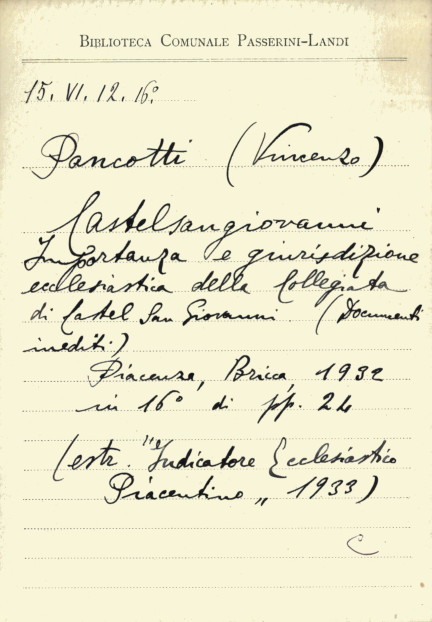 BIBLIOTECA COMUNALE PASSERINI-LANDI
15. VI. 12. 16°
Pancotti (Vincenzo)
Castelsangiovanni
Importanza e giurisdizione
ecclesiastica della Collegiata
di Castel San Giovanni. (Documenti
inediti)
Piacenza, Bricca, 1932
in 16° di pp. 24
(estr. "Indicatore Ecclesiastico
Piacentino„ 1933)
C